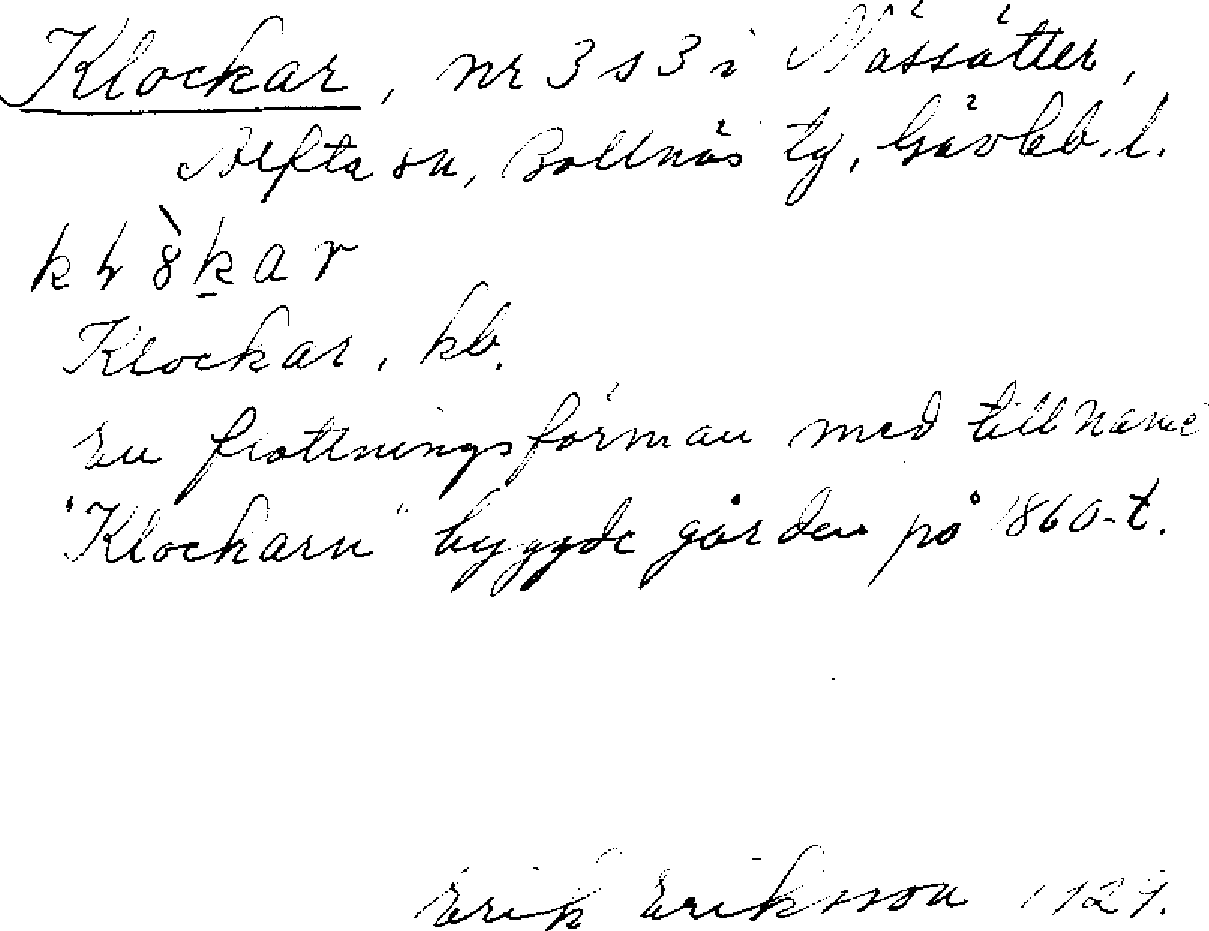 Klockar, nr 3 s 3 i Nässäter,
Alfta sn, Bollnäs tg, Gävleb. l.
Klockar, kb.
En flottningsförman med tillname
"Klockarn" byggde gården på 1860-t.
Erik Eriksson 1929.